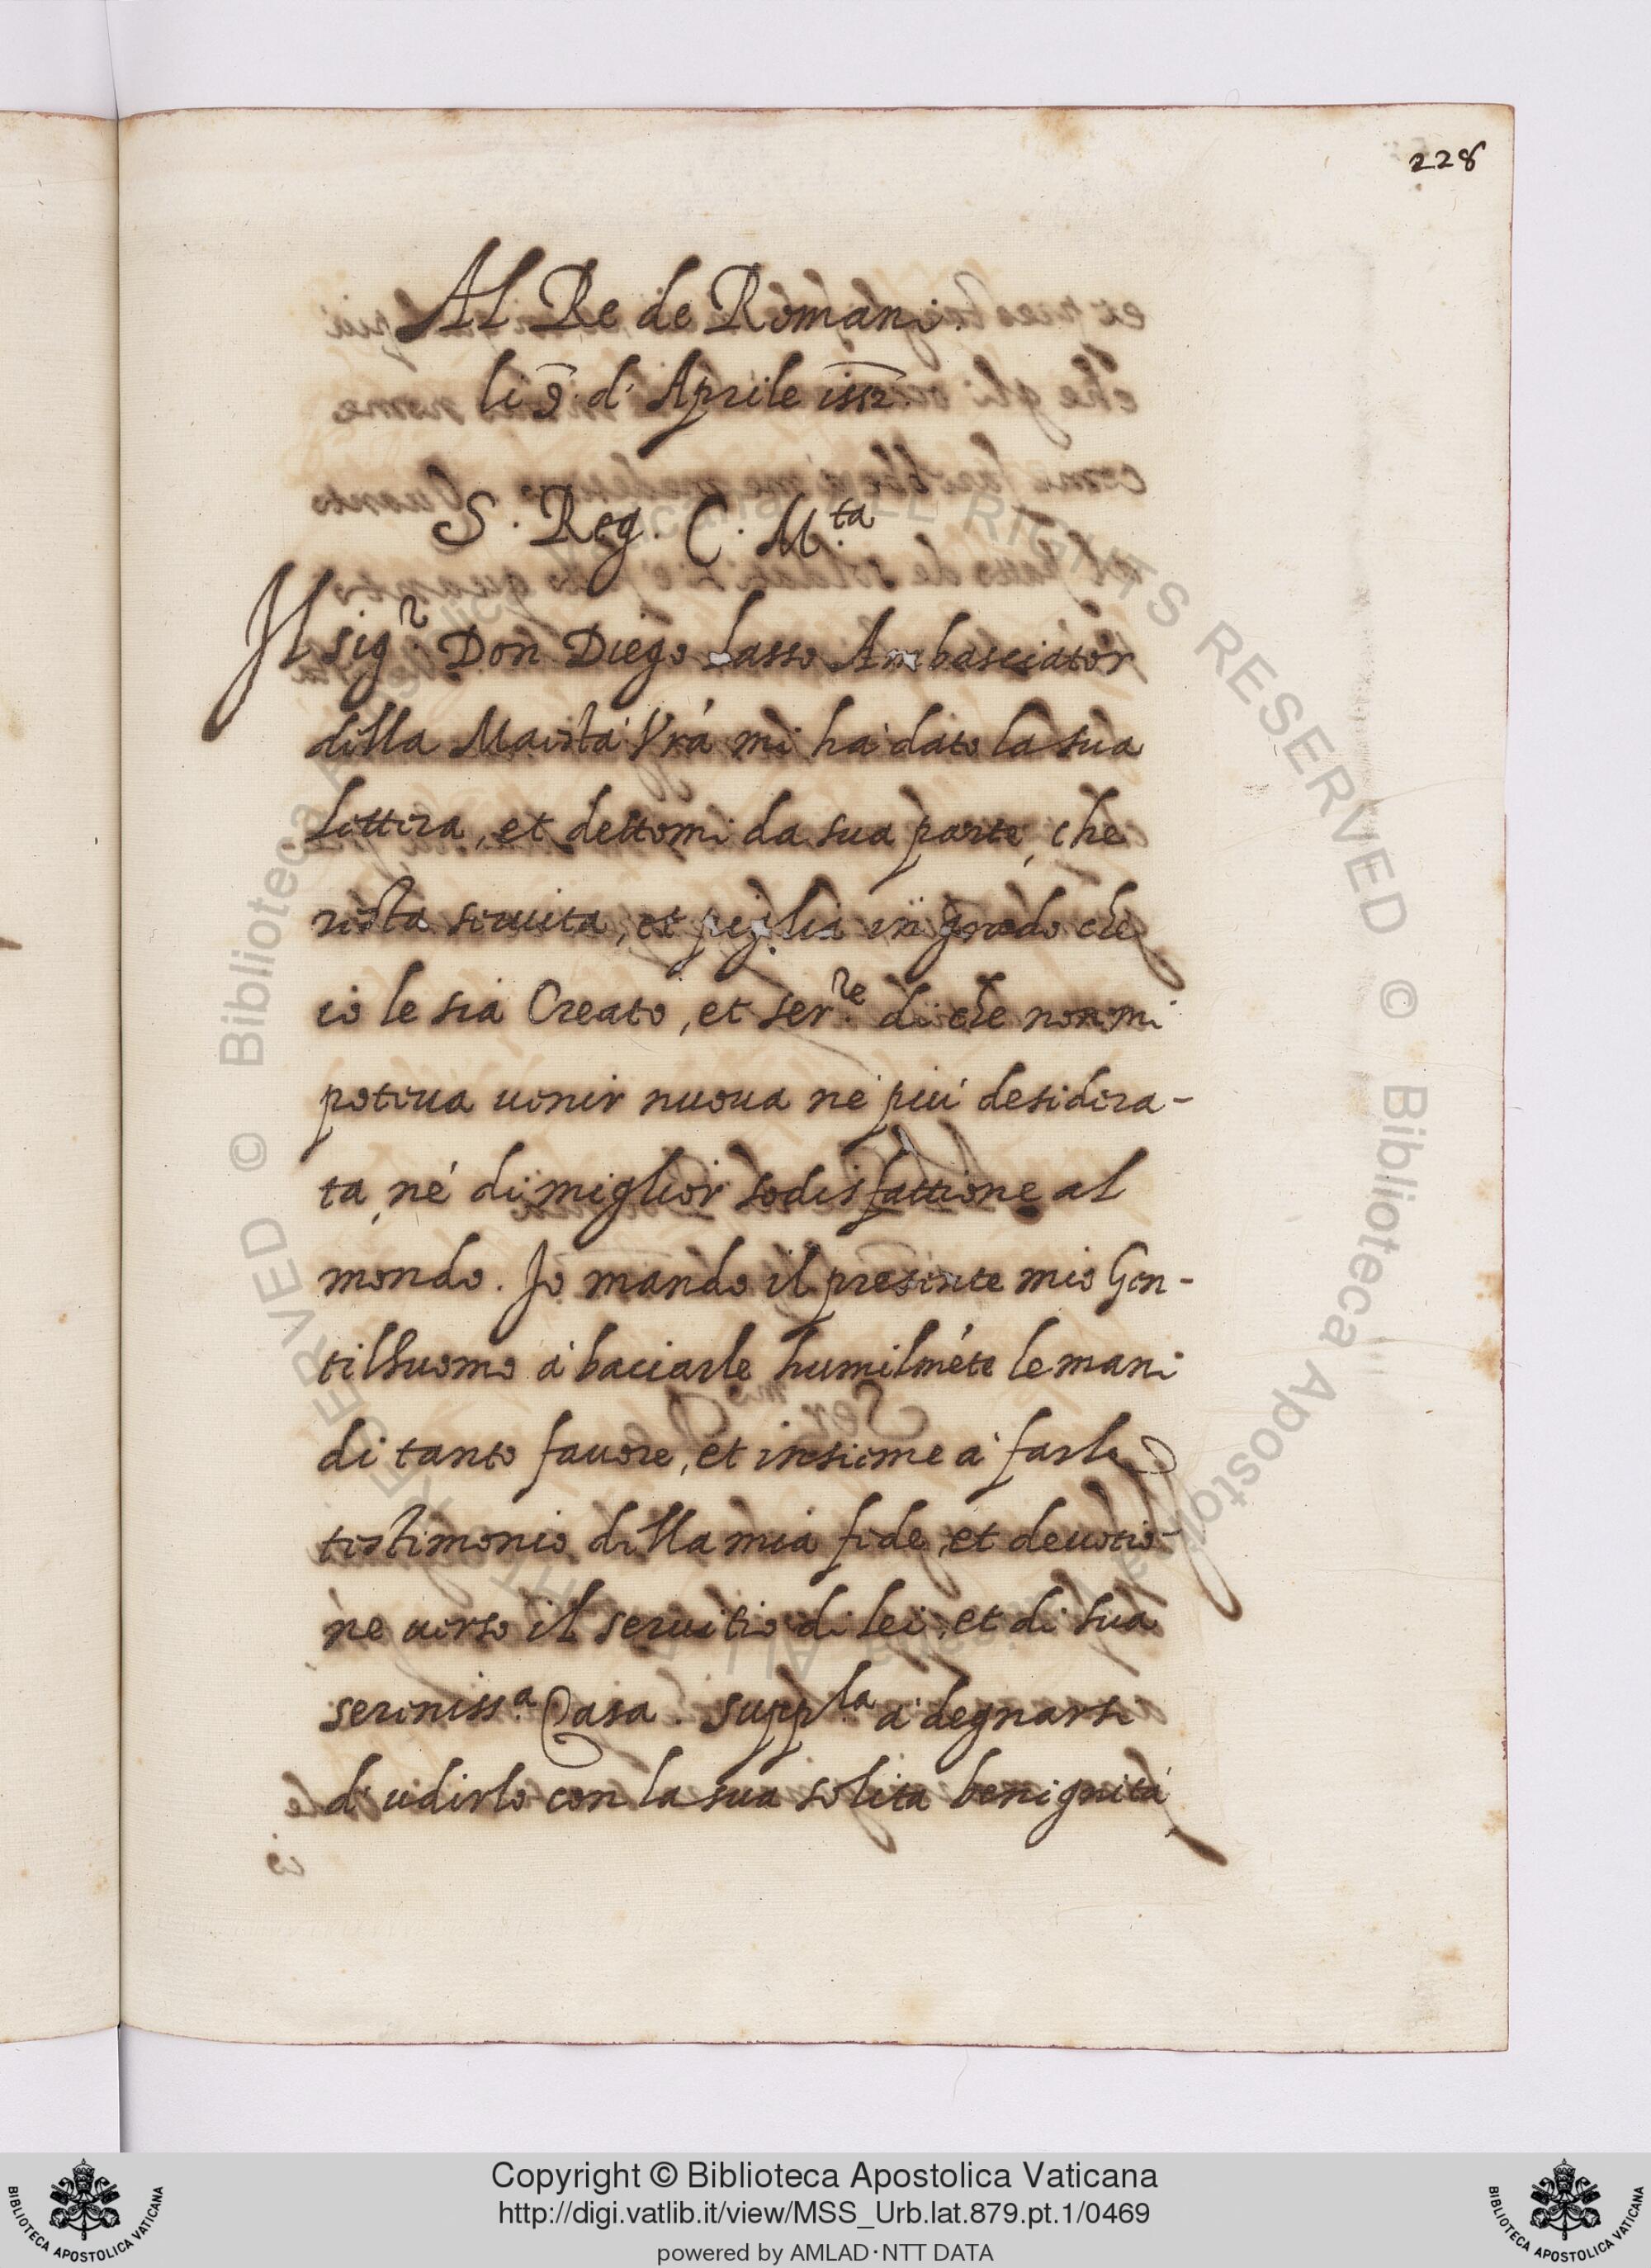 228
Al Re de Romani.
li 9. d' Aprile 1552.
S. Reg. C. M.ta
Il sig.r Don Diego Lasso Ambasciator
della Maestà Vrâ mi ha dato la sua
lettera, et dettomi da sua parte, che
resta servita, et piglia in grado che
io le sia Creato, et ser.re di che non mi
poteua uenir nuoua né più desidera-
ta, né di miglior sodisfattione al
mondo. Io mando il presente mio Gen-
tilhuomo à baciarle humilmẽte le mani
di tanto fauore, et insieme à farle
testimonio della mia fede, et deuotio-
ne uerso il seruitio di lei, et di sua
sereniss.a Casa. Supp.la à degnarsi
d'udirlo con la sua solita benignità
Copyright © Biblioteca Apostolica Vaticana
http://digi.vatlib.it/view/MSS_Urb.lat.879.pt.1/0469
powered by AMLAD·NTT DATA
BIBLIOTECA APOSTOLICA VATICANA
BIBLIOTECA APOSTOLICA VATICANA